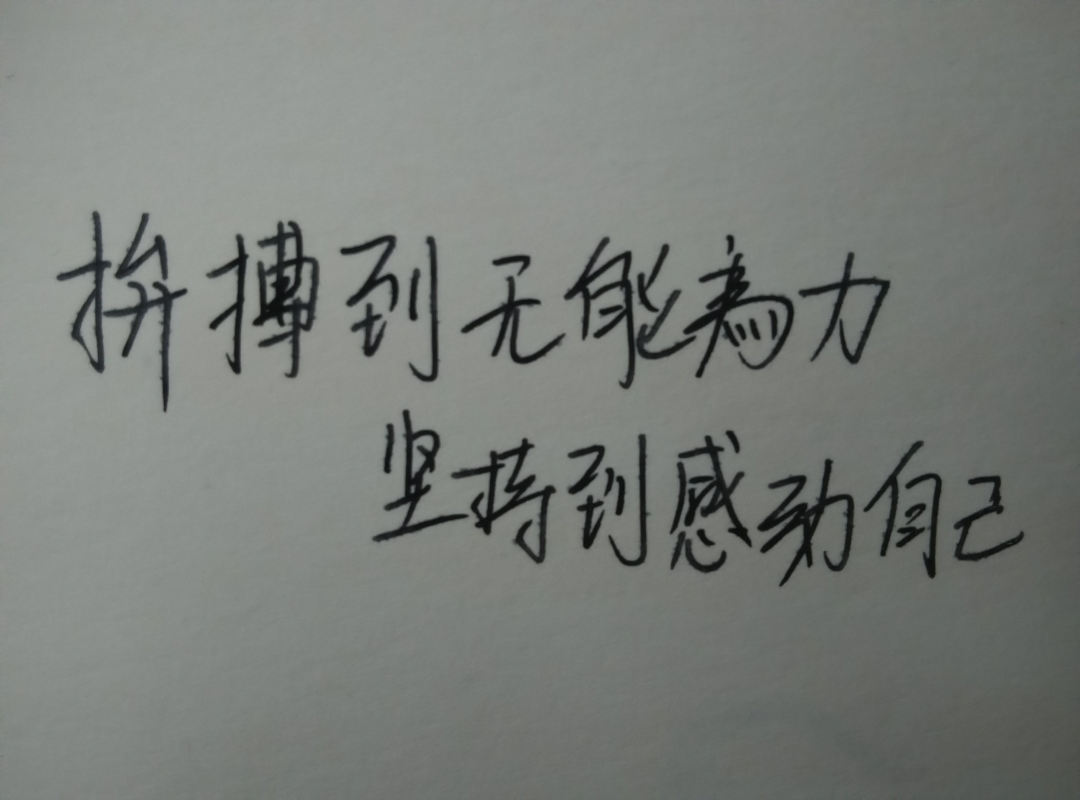 拚搏到无能為力
坚持到感动自己